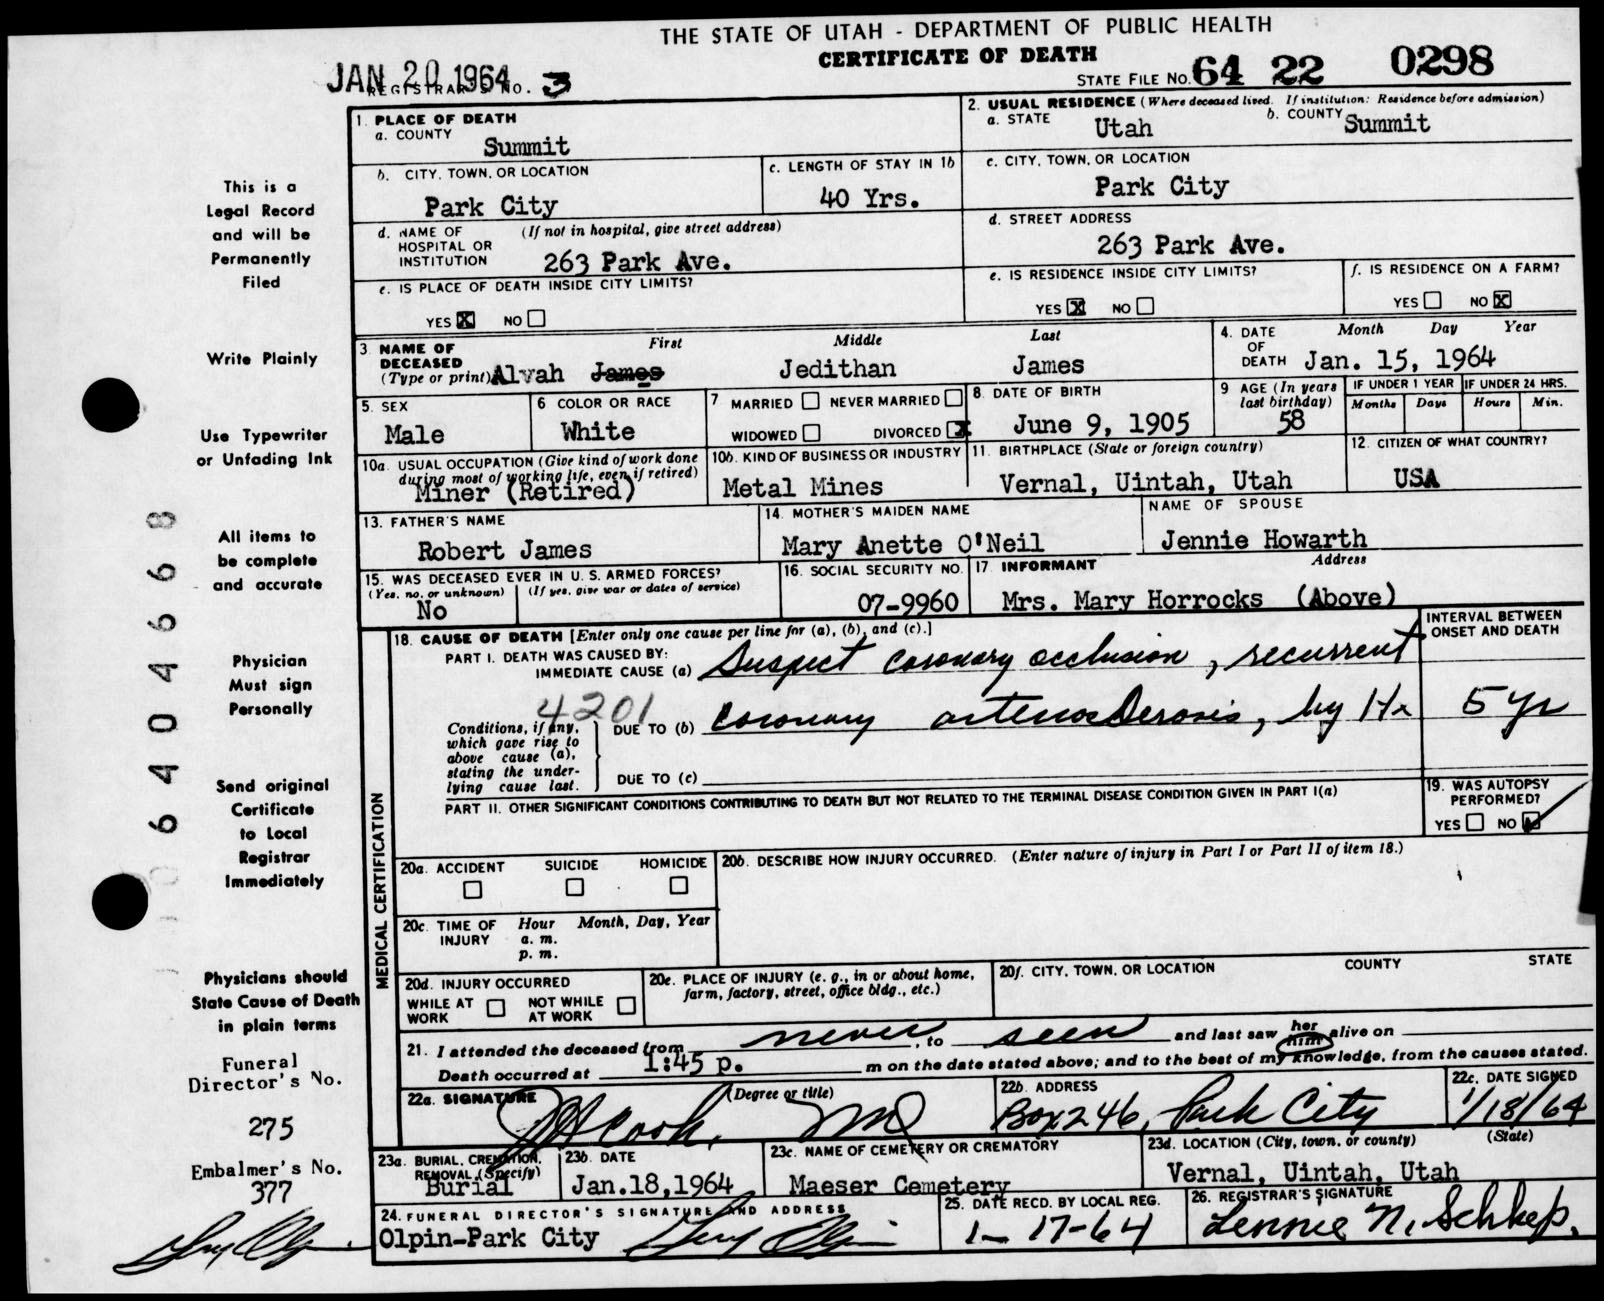 THE STATE OF UTAH - DEPARTMENT OF PUBLIC HEALTH
CERTIFICATE OF DEATH
JAN 20 1964
REGISTRAR'S NO. 3
STATE FILE NO. 64 22 0298
This is a
Legal Record
and will be
Permanently
Filed
Write Plainly
Use Typewriter
or Unfading Ink
All items to
be complete
and accurate
Physician
Must sign
Personally
Send original
Certificate
to Local
Registrar
Immediately
Physicians should
State Cause of Death
in plain terms
Funeral
Director's No.
275
Embalmer's No.
377
6404668
1. PLACE OF DEATH
a. COUNTY
Summit
b. CITY, TOWN, OR LOCATION
Park City
c. LENGTH OF STAY IN 1b
40 Yrs.
d. NAME OF HOSPITAL OR INSTITUTION (If not in hospital, give street address)
263 Park Ave.
e. IS PLACE OF DEATH INSIDE CITY LIMITS?
YES X NO
2. USUAL RESIDENCE (Where deceased lived. If institution: Residence before admission)
a. STATE Utah
b. COUNTY Summit
c. CITY, TOWN, OR LOCATION
Park City
d. STREET ADDRESS
263 Park Ave.
e. IS RESIDENCE INSIDE CITY LIMITS?
YES X NO
f. IS RESIDENCE ON A FARM?
YES NO X
3. NAME OF DECEASED (Type or print)
First Middle Last
Alvah James Jedithan James
4. DATE OF DEATH Month Day Year
Jan. 15, 1964
5. SEX
Male
6 COLOR OR RACE
White
7 MARRIED NEVER MARRIED
WIDOWED DIVORCED X
8. DATE OF BIRTH
June 9, 1905
9 AGE (In years last birthday)
58
IF UNDER 1 YEAR IF UNDER 24 HRS.
Months Days Hours Min.
10a. USUAL OCCUPATION (Give kind of work done during most of working life, even if retired)
Miner (Retired)
10b. KIND OF BUSINESS OR INDUSTRY
Metal Mines
11. BIRTHPLACE (State or foreign country)
Vernal, Uintah, Utah
12. CITIZEN OF WHAT COUNTRY?
USA
13. FATHER'S NAME
Robert James
14. MOTHER'S MAIDEN NAME
Mary Anette O'Neil
NAME OF SPOUSE
Jennie Howarth
15. WAS DECEASED EVER IN U. S. ARMED FORCES?
(Yes, no, or unknown) (If yes, give war or dates of service)
No
16. SOCIAL SECURITY NO.
07-9960
17. INFORMANT Address
Mrs. Mary Horrocks (Above)
MEDICAL CERTIFICATION
18. CAUSE OF DEATH [Enter only one cause per line for (a), (b), and (c).]
INTERVAL BETWEEN ONSET AND DEATH
PART I. DEATH WAS CAUSED BY:
IMMEDIATE CAUSE (a) Suspect coronary occlusion, recurrent
4201
Conditions, if any, which gave rise to above cause (a), stating the underlying cause last.
DUE TO (b) coronary arteriosclerosis, by Hx 5 yr
DUE TO (c)
PART II. OTHER SIGNIFICANT CONDITIONS CONTRIBUTING TO DEATH BUT NOT RELATED TO THE TERMINAL DISEASE CONDITION GIVEN IN PART I(a)
19. WAS AUTOPSY PERFORMED?
YES NO
20a. ACCIDENT SUICIDE HOMICIDE
20b. DESCRIBE HOW INJURY OCCURRED. (Enter nature of injury in Part I or Part II of item 18.)
20c. TIME OF INJURY Hour Month, Day, Year
a. m.
p. m.
20d. INJURY OCCURRED
WHILE AT WORK NOT WHILE AT WORK
20e. PLACE OF INJURY (e. g., in or about home, farm, factory, street, office bldg., etc.)
20f. CITY, TOWN, OR LOCATION COUNTY STATE
21. I attended the deceased from never, to seen and last saw her him alive on
Death occurred at 1:45 p. m on the date stated above; and to the best of my knowledge, from the causes stated.
22a. SIGNATURE (Degree or title)
Cook, MD
22b. ADDRESS
Box 246, Park City
22c. DATE SIGNED
1/18/64
23a. BURIAL, CREMATION, REMOVAL (Specify)
Burial
23b. DATE
Jan.18,1964
23c. NAME OF CEMETERY OR CREMATORY
Maeser Cemetery
23d. LOCATION (City, town, or county) (State)
Vernal, Uintah, Utah
24. FUNERAL DIRECTOR'S SIGNATURE AND ADDRESS
Olpin-Park City
25. DATE RECD. BY LOCAL REG.
1-17-64
26. REGISTRAR'S SIGNATURE